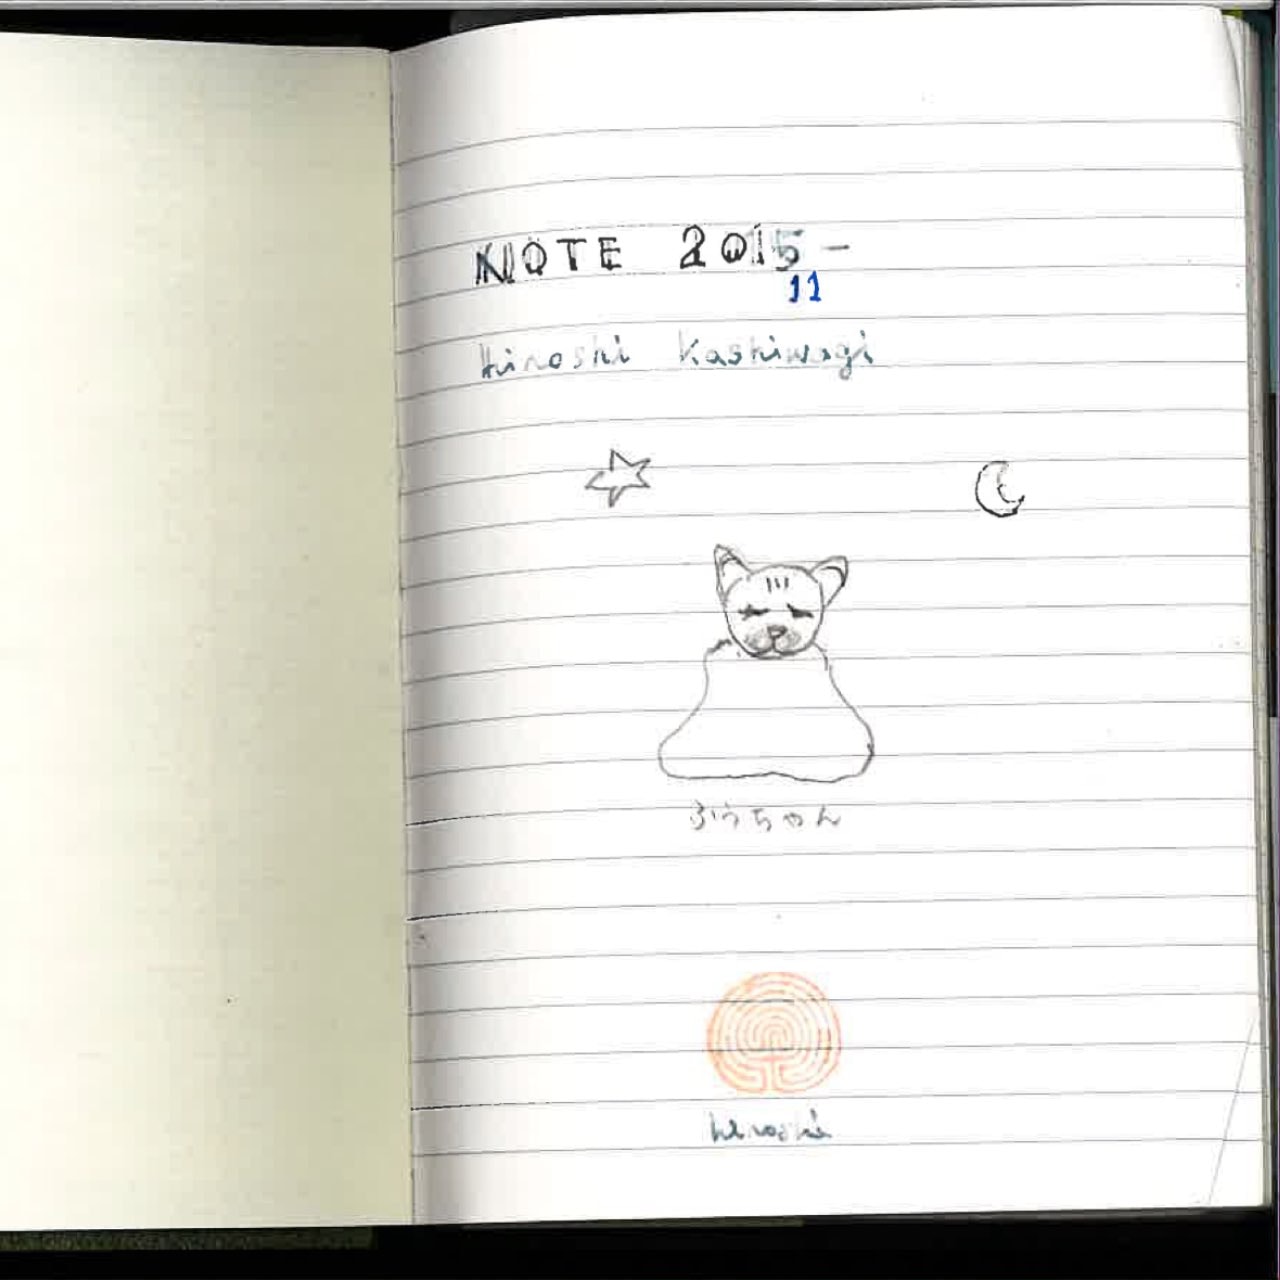 NOTE 2015 -
11
Hiroshi Kashiwagi
ふうちゃん
hiroshi